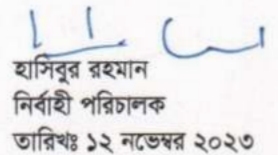 হাসিবুর রহমান
নির্বাহী পরিচালক
তারিখঃ ১২ নভেম্বর ২০২৩